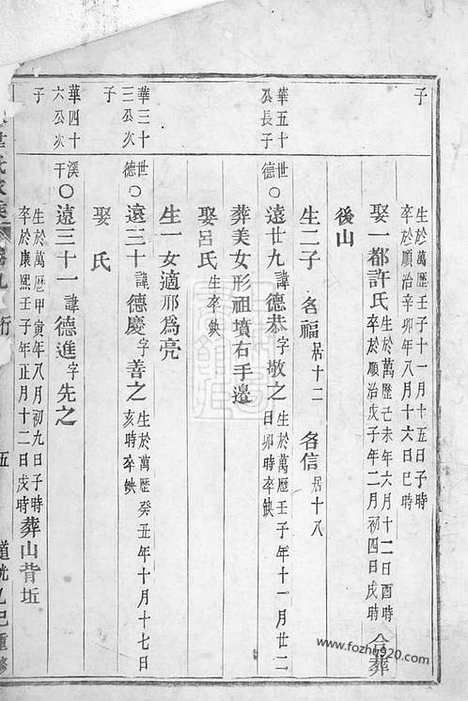 子
生於萬歷壬子十一月十五日子時
卒於順治辛卯年八月十六日巳時
娶一都許氏
生於萬歷己未年六月十二日酉時
卒於順治戊子年二月初四日戌時
合葬
後山
生二子 名福 居十二 名信 居十八
華五十
公長子
德
○遠廿九 諱 德恭 字 敬之
生於萬歷壬子年十一月廿二
日卯時卒缺
葬美女形祖墳右手邊
娶呂氏 生卒缺
生一女適邢為亮
華三十
三公次
子
世
德
○遠三十 諱 德慶 字 善之
生於萬歷癸丑年十月十七日
亥時卒缺
娶 氏
華四十
六公次
子
溪
干
○遠三十一 諱 德進 字 先之
生於萬歷甲寅年八月初九日子時
卒於康熙壬子年正月十二日戌時
葬山背坵
五
道光乙巳重修
www.fozhu920.com